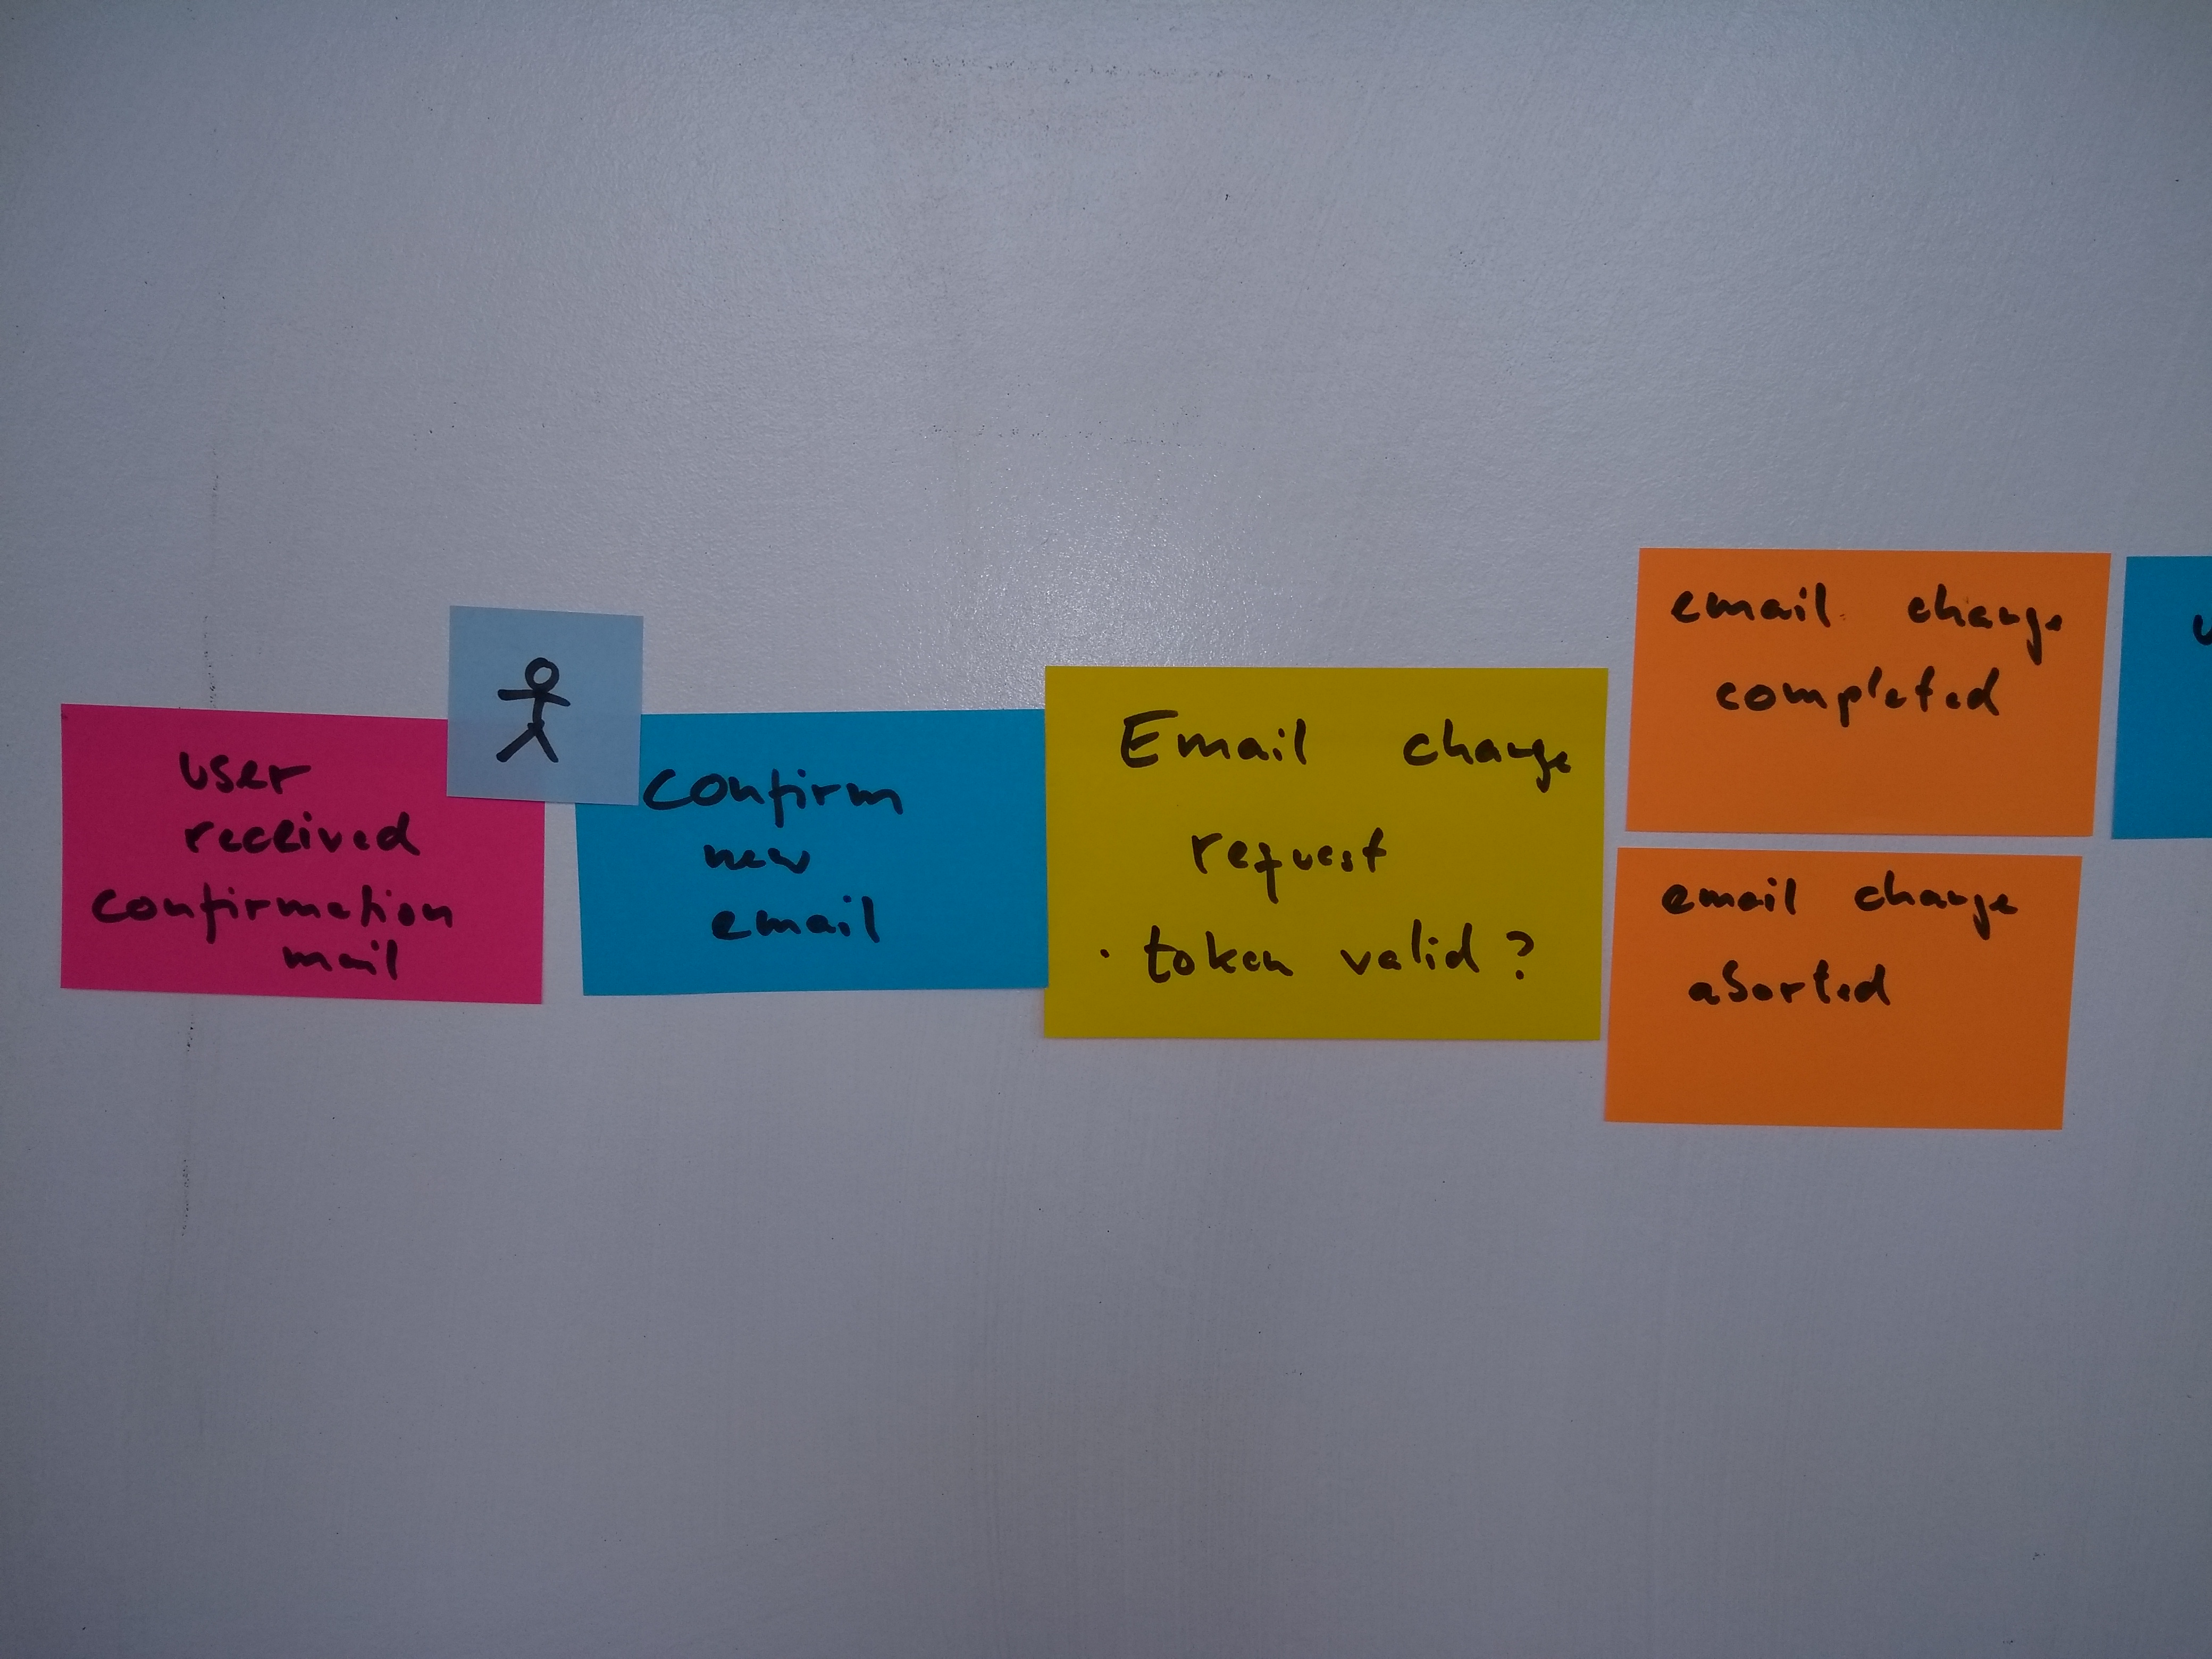 user
received
confirmation
mail
confirm
new
email
Email change
request
· token valid?
email change
completed
email change
aborted